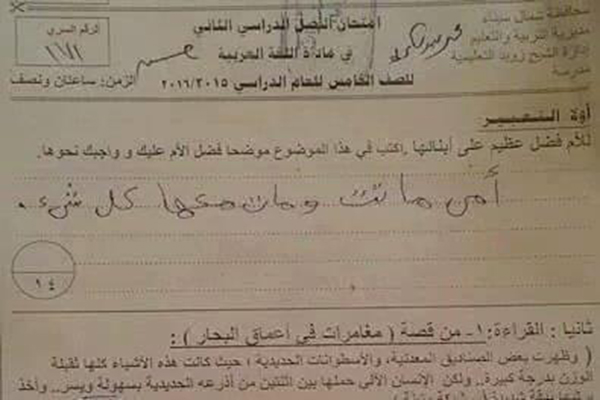 محافظة شمال سيناء
مديرية التربية والتعليم
إدارة الشيخ زويد التعليمية
مدرسة
امتحان الفصل الدراسي الثاني
في مادة اللغة العربية
للصف الخامس للعام الدراسي ٢٠١٦/٢٠١٥
الرقم السري
١٧١
الزمن: ساعتان ونصف
أولا التعبير:
للأم فضل عظيم على أبنائها. اكتب في هذا الموضوع موضحا فضل الأم عليك و واجبك نحوها.
أمي ماتت ومات معها كل شيء.
١٤
ثانيا : القراءة: ١- من قصة ( مغامرات في أعماق البحار ) :
( وظهرت بعض الصناديق المعدنية، والأسطوانات الحديدية ؛ حيث كانت هذه الأشياء كلها ثقيلة
الوزن بدرجة كبيرة.. ولكن الإنسان الآلي حملها بين اثنتين من أذرعه الحديدية بسهولة ويسر.. وأخذ